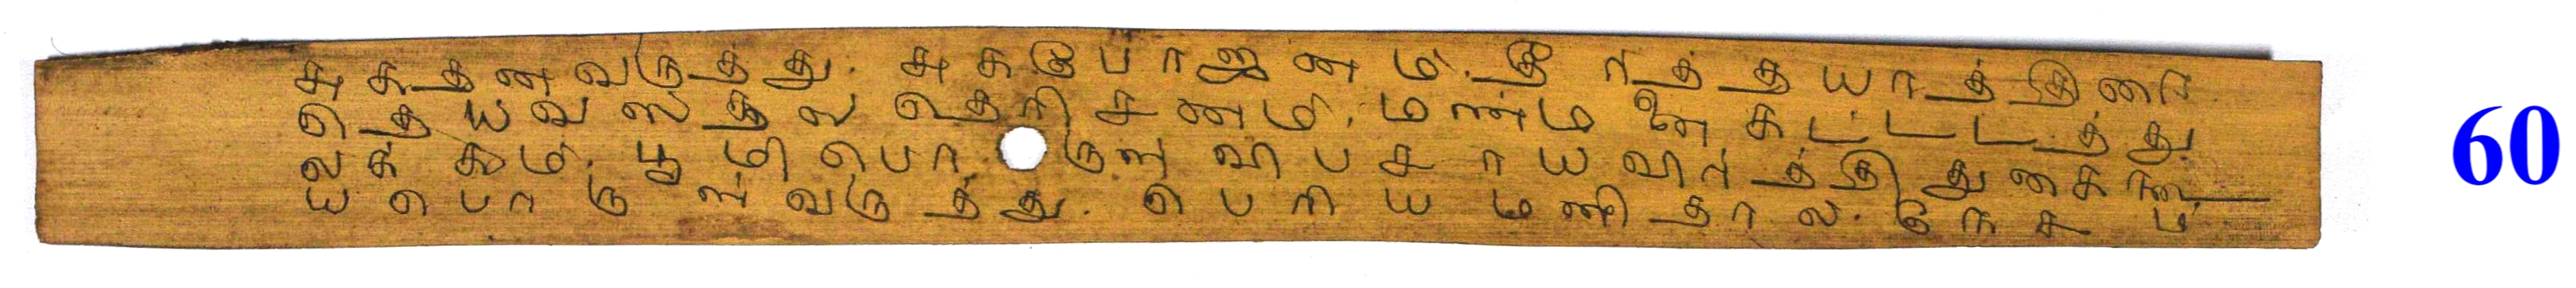 சுகதனவருத்து. சுகபோஜனம். தீர்த்தயாத்திரை
தெய்வஸ்தல தெரிசனம். மண்மனை கட்டடத்து
லக்கும். பூமிபொருள் விபசாயவிர்த்தி துகை
யபொருள்வருத்து. பெரியமனிதால். நேசம்
60